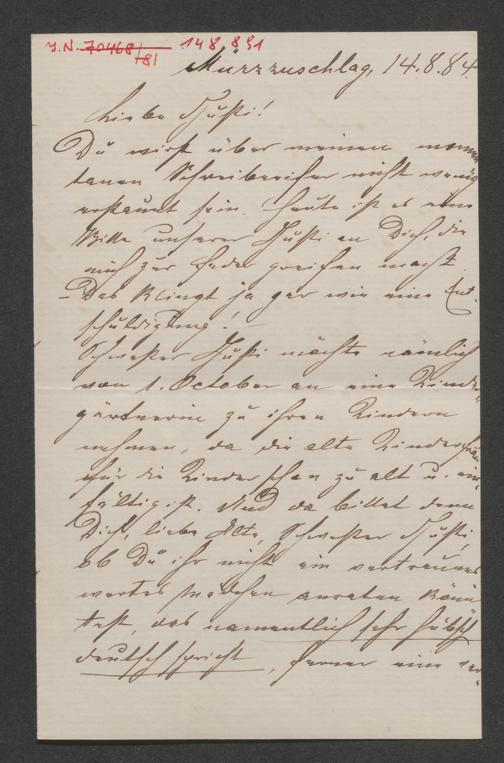 J.N. 70468/181 148.891
Mürzzuschlag, 14.8.84
Liebe Gusti!
Du wirst über meinen momen
tanen Schreibeifer nicht wenig
erstaunt sein. Heute ist es eine
Bitte unserer Gusti an Dich, die
mich zur Feder greifen macht
– Das klingt ja gar wie eine Ent-
schuldigung!
Schwester Gusti möchte nämlich
vom 1. October an eine Kinder-
gärtnerin zu ihren Kindern
nehmen, da die alte Kinderfrau
für die Kinder schon zu alt u. ein-
fältig ist. Und da bittet denn
Dich, liebe Alte, Schwester Gusti,
ob Du ihr nicht ein vertrauens
wertes Mädchen anraten könn
test, das namentlich sehr hübsch
deutsch spricht, ferner eine ver-